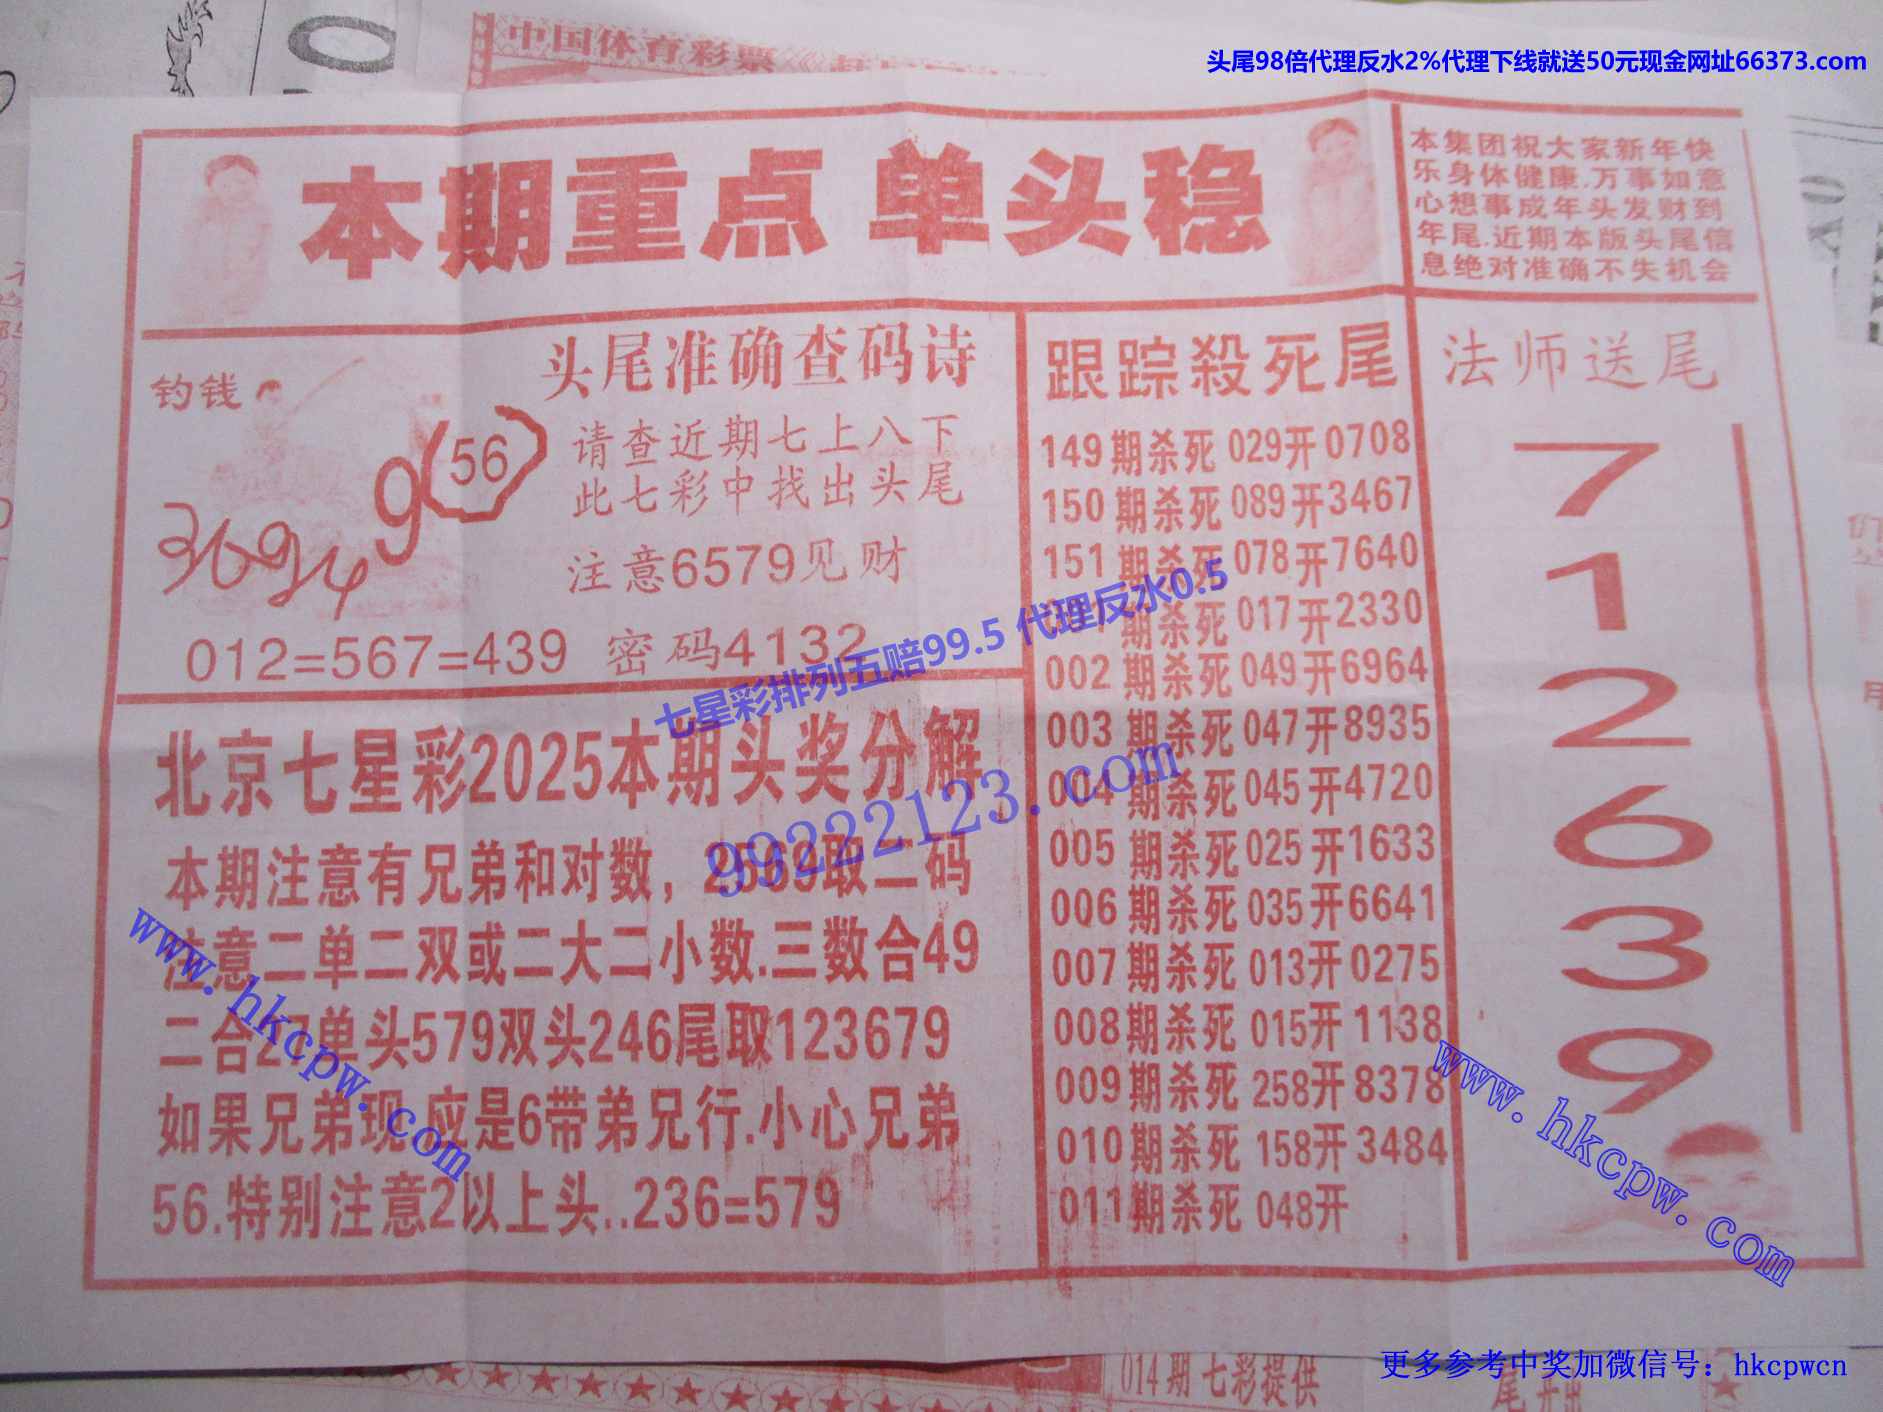 中国体育彩票
头尾98倍代理反水2%代理下线就送50元现金网址66373.com
本期重点 单头稳
本集团祝大家新年快
乐身体健康.万事如意
心想事成年头发财到
年尾.近期本版头尾信
息绝对准确不失机会
钓钱
9(56)
3694
头尾准确查码诗
请查近期七上八下
此七彩中找出头尾
注意6579见财
012=567=439 密码4132
北京七星彩2025本期头奖分解
本期注意有兄弟和对数，2569取二码
注意二单二双或二大二小数.三数合49
二合27单头579双头246尾取123679
如果兄弟现.应是6带弟兄行.小心兄弟
56.特别注意2以上头..236=579
跟踪殺死尾
149期杀死029开0708
150期杀死089开3467
151期杀死078开7640
001期杀死017开2330
002期杀死049开6964
003期杀死047开8935
004期杀死045开4720
005期杀死025开1633
006期杀死035开6641
007期杀死013开0275
008期杀死015开1138
009期杀死258开8378
010期杀死158开3484
011期杀死048开
法师送尾
7
1
2
6
3
9
七星彩排列五赔99.5 代理反水0.5
99222123.com
www.hkcpw.com
www.hkcpw.com
014期七彩提供
尾开出
更多参考中奖加微信号：hkcpwcn